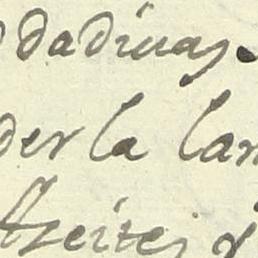 dadiuas.
der la lan
Azeites y